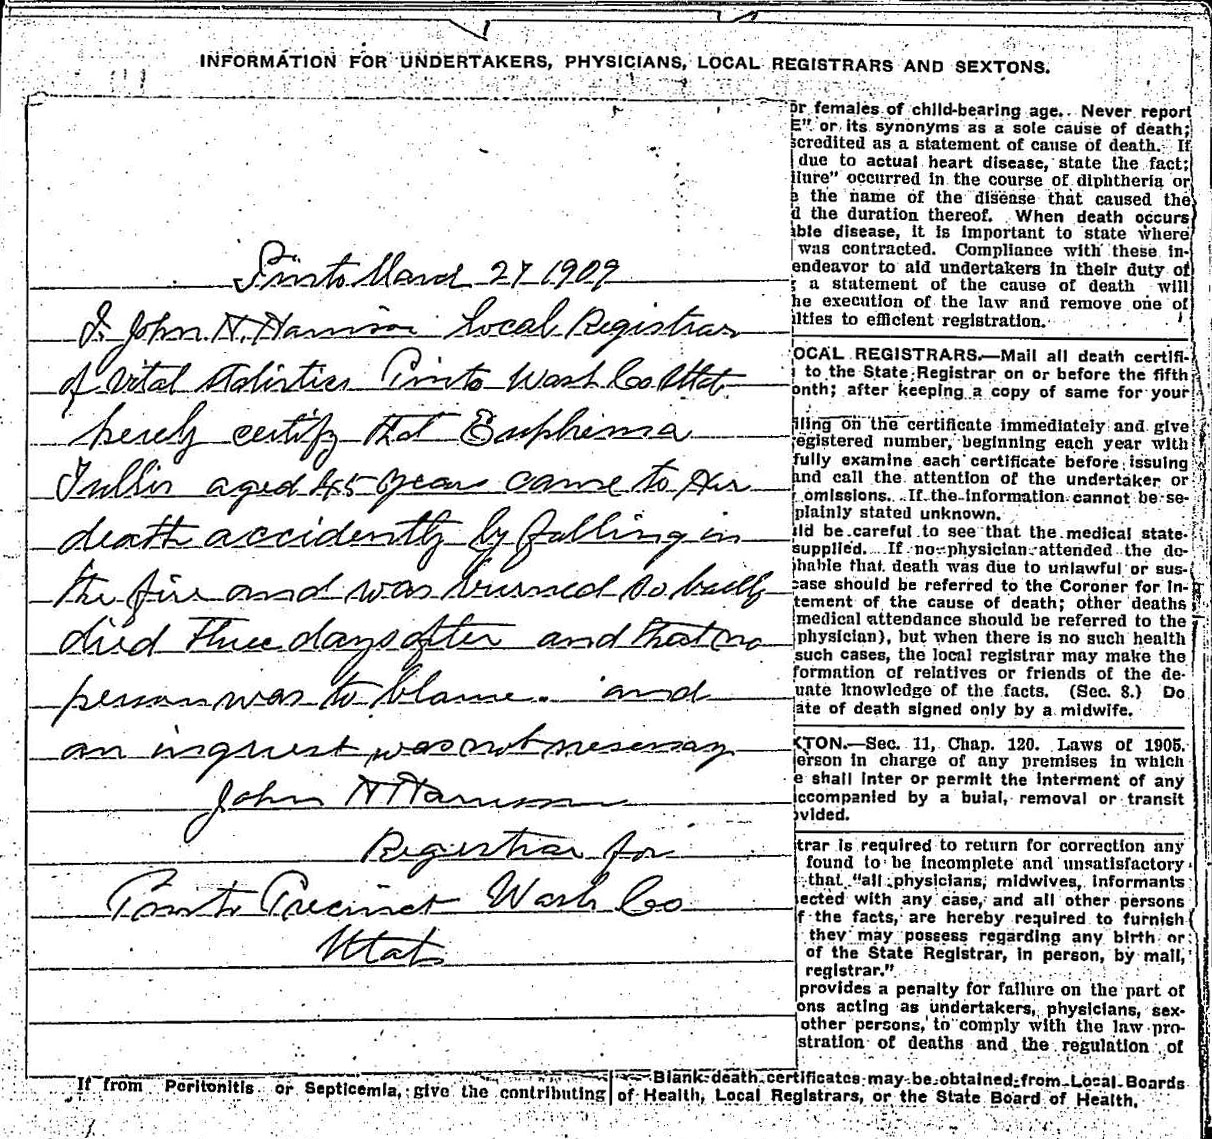 INFORMATION FOR UNDERTAKERS, PHYSICIANS, LOCAL REGISTRARS AND SEXTONS.
Pinto March 27 1909
I. John H. Harrison Local Registrar
of Vital Statistics Pinto Wash Co Utah
herely certify that Euphemia
aged 45 years came to Her
death accidently by falling in
the fire and was burned so badly
died Three days after and that no
person was to blame. and
an inquest was not nesessary
John H Harrison
Registrar for
Pinto Precinct Wash Co
Utah
or females of child-bearing age. Never report
E" or its synonyms as a sole cause of death;
scredited as a statement of cause of death. If
due to actual heart disease, state the fact;
ilure" occurred in the course of diphtheria or
e the name of the disease that caused the
d the duration thereof. When death occurs
ble disease, it is important to state where
was contracted. Compliance with these in-
endeavor to aid undertakers in their duty of
; a statement of the cause of death will
he execution of the law and remove one of
lties to efficient registration.
OCAL REGISTRARS.—Mail all death certifi-
to the State Registrar on or before the fifth
onth; after keeping a copy of same for your
iling on the certificate immediately and give
egistered number, beginning each year with
fully examine each certificate before issuing
and call the attention of the undertaker or
omissions. If the information cannot be se-
plainly stated unknown.
ld be careful to see that the medical state-
supplied. If no physician attended the de-
bable that death was due to unlawful or sus-
case should be referred to the Coroner for in-
tement of the cause of death; other deaths
medical attendance should be referred to the
physician), but when there is no such health
such cases, the local registrar may make the
formation of relatives or friends of the de-
uate knowledge of the facts. (Sec. 8.) Do
ate of death signed only by a midwife.
XTON.—Sec. 11, Chap. 120. Laws of 1905.
erson in charge of any premises in which
e shall inter or permit the interment of any
ccompanied by a buial, removal or transit
ovided.
trar is required to return for correction any
found to be incomplete and unsatisfactory
that "all physicians, midwives, informants
ected with any case, and all other persons
f the facts, are hereby required to furnish
they may possess regarding any birth or
of the State Registrar, in person, by mail,
registrar."
provides a penalty for failure on the part of
ons acting as undertakers, physicians, sex-
other persons, to comply with the law pro-
stration of deaths and the regulation of
If from Peritonitis or Septicemia, give the contributing
Blank death certificates may be obtained from Local Boards
of Health, Local Registrars, or the State Board of Health.